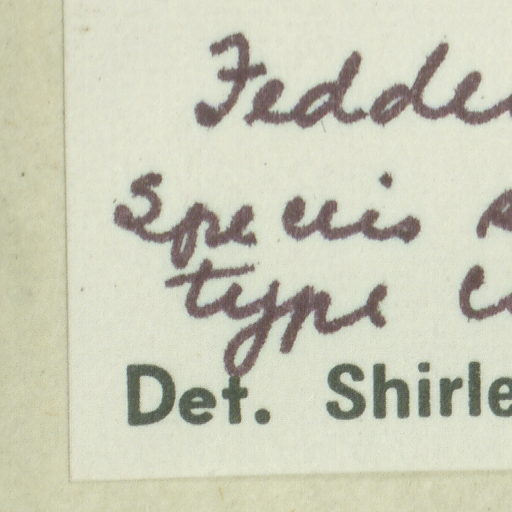 Fedde
Species
type
Det. Shirle